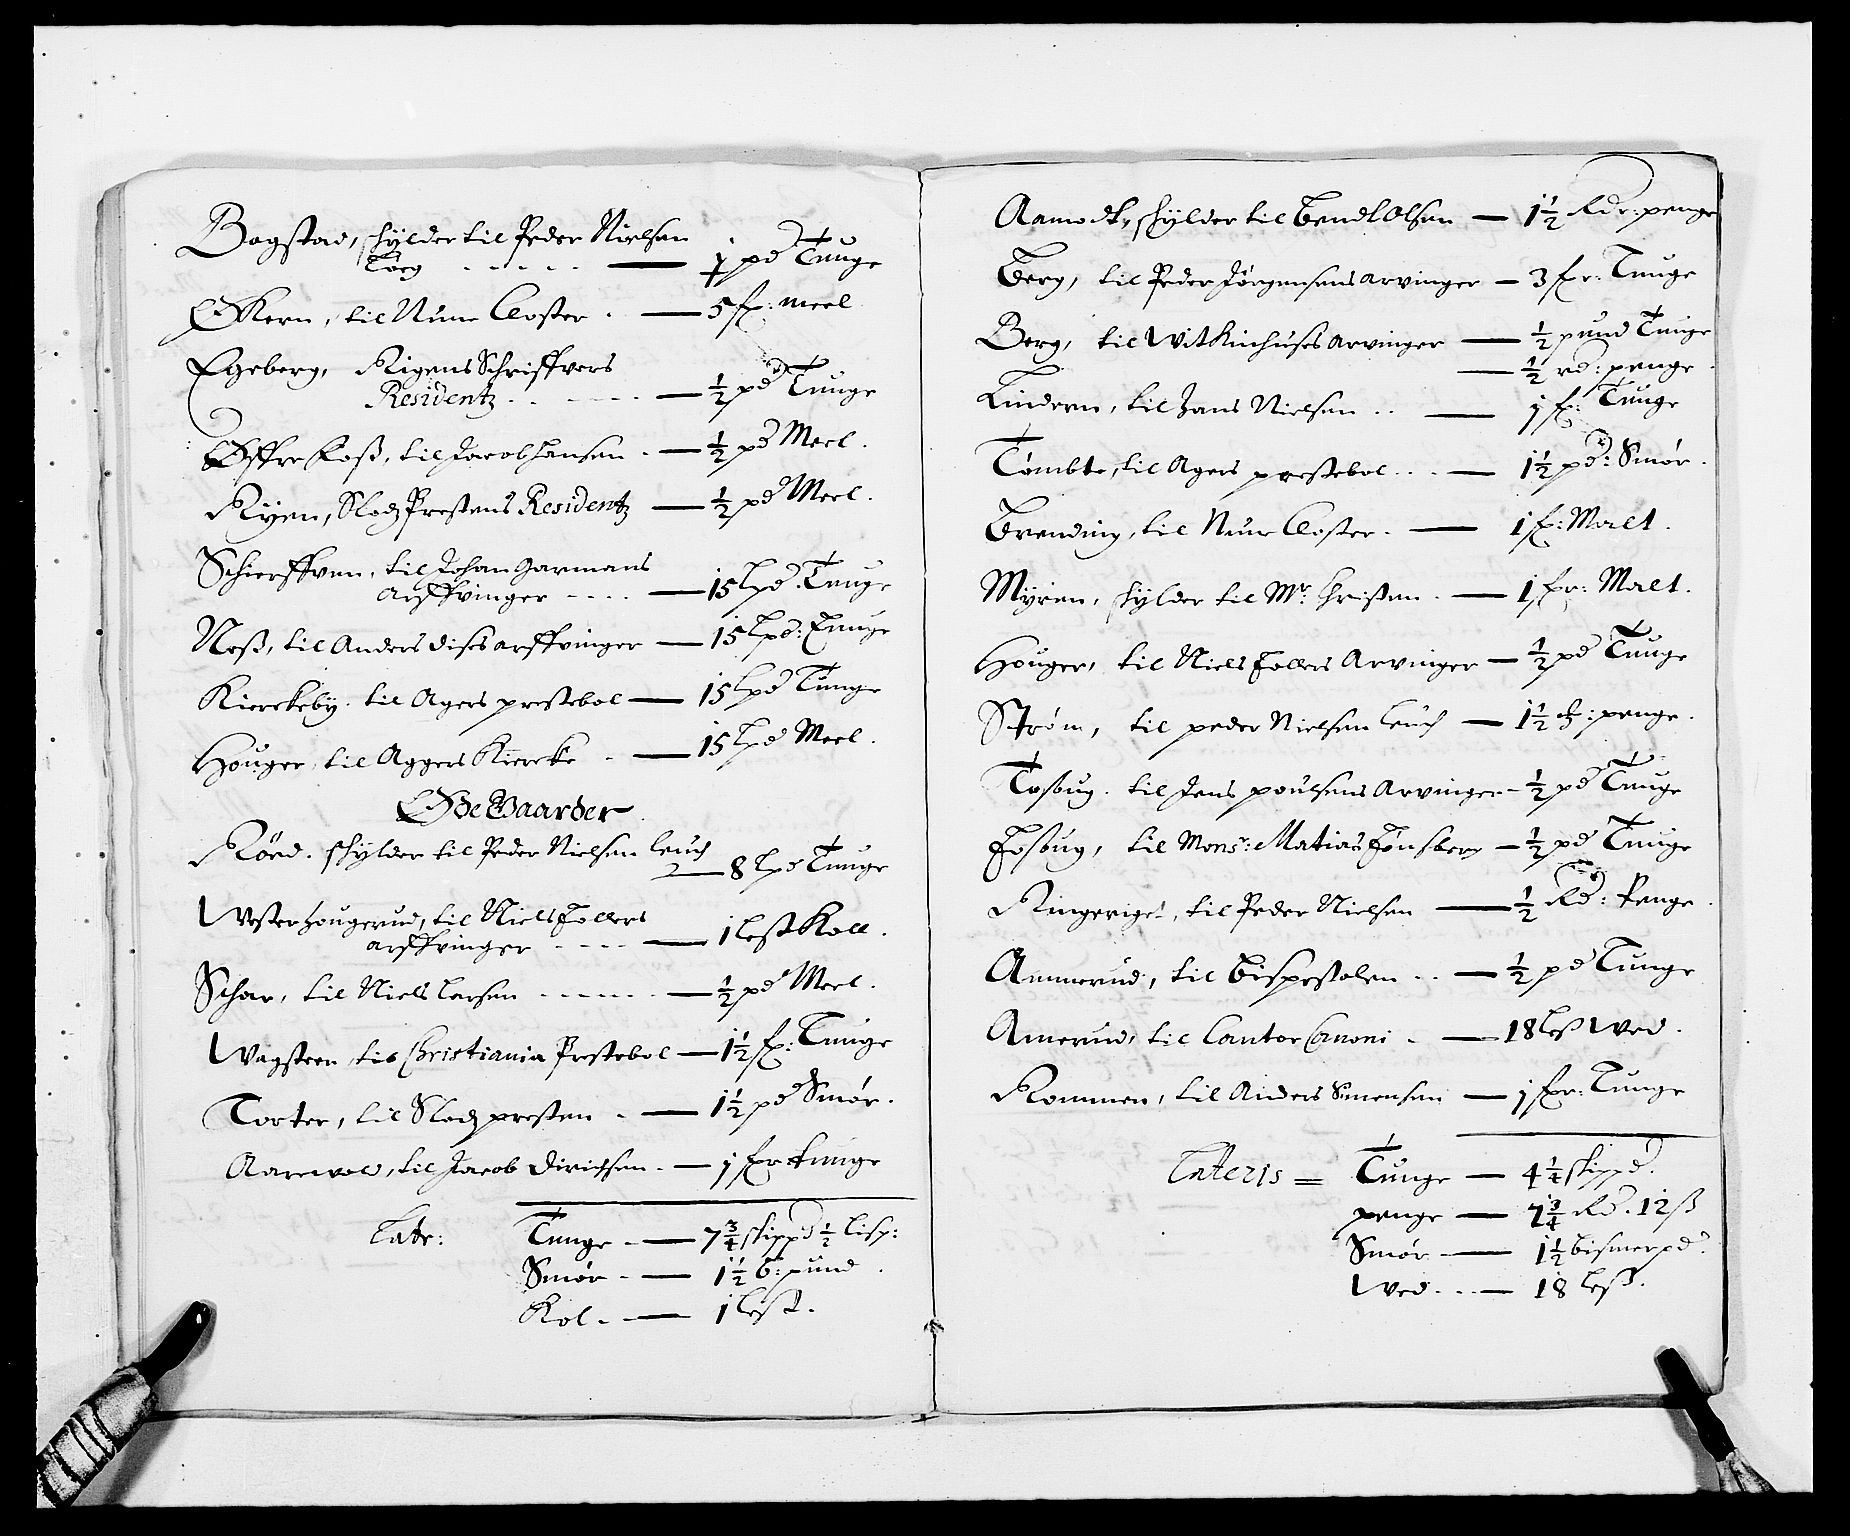 Bogstad, schylder til Peder Nielsen
Leug - - - - - — 1 pd Tunge
Økern, til Nunne Closter. — 5 fr: meel
Egeberg, Rigens Schriffvers
Residentz - - - - — ½ pd Tunge
Øffre Foss, til Jacob Hansen - — ½ pd Meel.
Ryen, Slodz Prestens Residentz — ½ pd Meel.
Schierffven, til Johan Garmans
arffvinger - - - - — 15 lpd. Tunge
Ness, til Anders Dises arffvinger — 15 lpd: Tunge
Kierckeby. til Agers prestebol — 15 lpd Tunge
Houger, til Aggers Kiercke - — 15 lpd Meel.
Øde Gaarder
Röed. schylder til Peder Nielsen Leuch
— 8 lpd Tunge
Wester Hougerud, til Niels Tollers
arffvinger - - - - — 1 lest Koll.
Schar, til Niels Larsen - - - - - — ½ pd Meel.
Wagsteen, til Christiania Prestebol — 1½ fr: Tunge
Torter, til Slodz presten - — 1½ pd Smør.
Aarevold, til Jacob Dirichsen - — 1 fr tunge
Later: Tunge - — 7¾ skippd ½ lisp:
Smør - — 1½ b: pund.
Kol - — 1 lest.
Aamodt, schylder til Bendt Olsen — 1½ Rdr: penge
Berg, til Peder Jörgensens arvinger — 3 fr: Tunge
Berg, til Witkinhuses arvinger — ½ pund Tunge
— ½ rd: penge.
Lindern, til Hans Nielsen - - — 1 fr: Tunge
Tømbte, til Agers prestebol - - - — 1½ pd: Smør.
Brending, til Nunne Closter. — 1 fr: Malt.
Myren, schylder til Mr: Christen - — 1 fr: Malt.
Houger, til Niels Tollers Arvinger — ½ pd Tunge
Strøm, til peder Nielsen Leuch — 1½ : penge.
Foshug. til Jens poulsens Arvinger — ½ pd Tunge
Foshug, til Monsr: Matias Tønsberg — ½ pd Tunge
Ringeriget, til Peder Nielsen — ½ Rd: Penge.
Ammerud, til Bispestolen - - — ½ pd Tunge
Amerud, til Cantor Canoni - — 18 less Wed.
Rommen, til Anders Simensen — 1 fr: Tunge
Lateris = Tunge — 4¼ skippd.
penge — 7¾ Rd. 12 ß
Smør — 1½ bismerpd.
Wed - - - — 18 less.